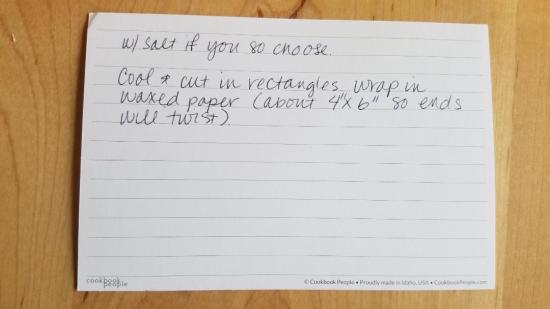 w/ salt if you so choose.
Cool & cut in rectangles. Wrap in
waxed paper (about 4"x 6" so ends
will twist).
cookbook
people
© Cookbook People • Proudly made in Idaho, USA • CookbookPeople.com